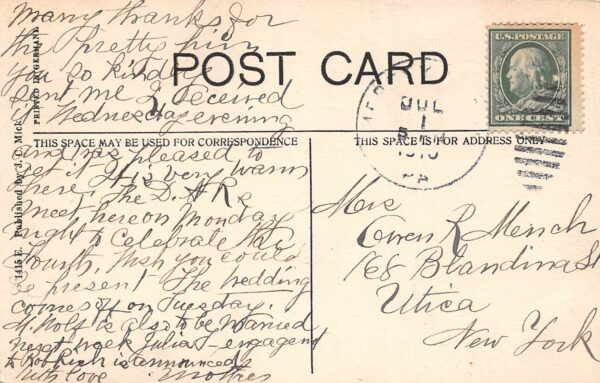 Many thanks for
the pretty
you so kindly
sent me I received
it Wednesday evening
POST CARD
U.S. POSTAGE
ONE CENT
JUL
1
PA.
THIS SPACE MAY BE USED FOR CORRESPONDENCE
THIS SPACE IS FOR ADDRESS ONLY
and was pleased to
get it. It is very warm
here. The D.A.R.s
meet here on Monday
night to celebrate the
Fourth. Wish you could
be present The wedding
comes off on Tuesday.
is also to be married
next week Julia engagent
to is announced
with love. Mother
Mrs
Owen R Mench
168 Blandina St
Utica
New York
1415 E. Published by J. C. Mick
PRINTED IN GERMANY